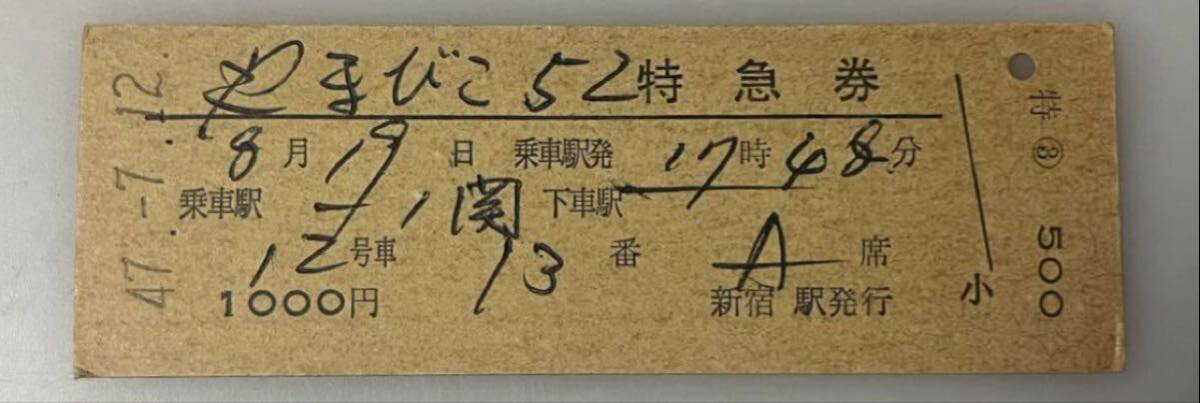 47.-7.12.
やまびこ52特急券
8月19日 乗車駅発 17時48分
乗車駅 一ノ関 下車駅
12号車 13番 A席
1000円 新宿駅発行
小
特③ 500